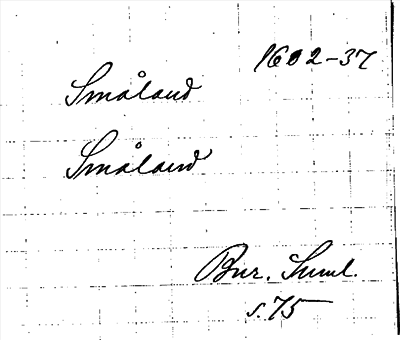 1602-37
Småland
Småland
Bur. Suml.
s. 75